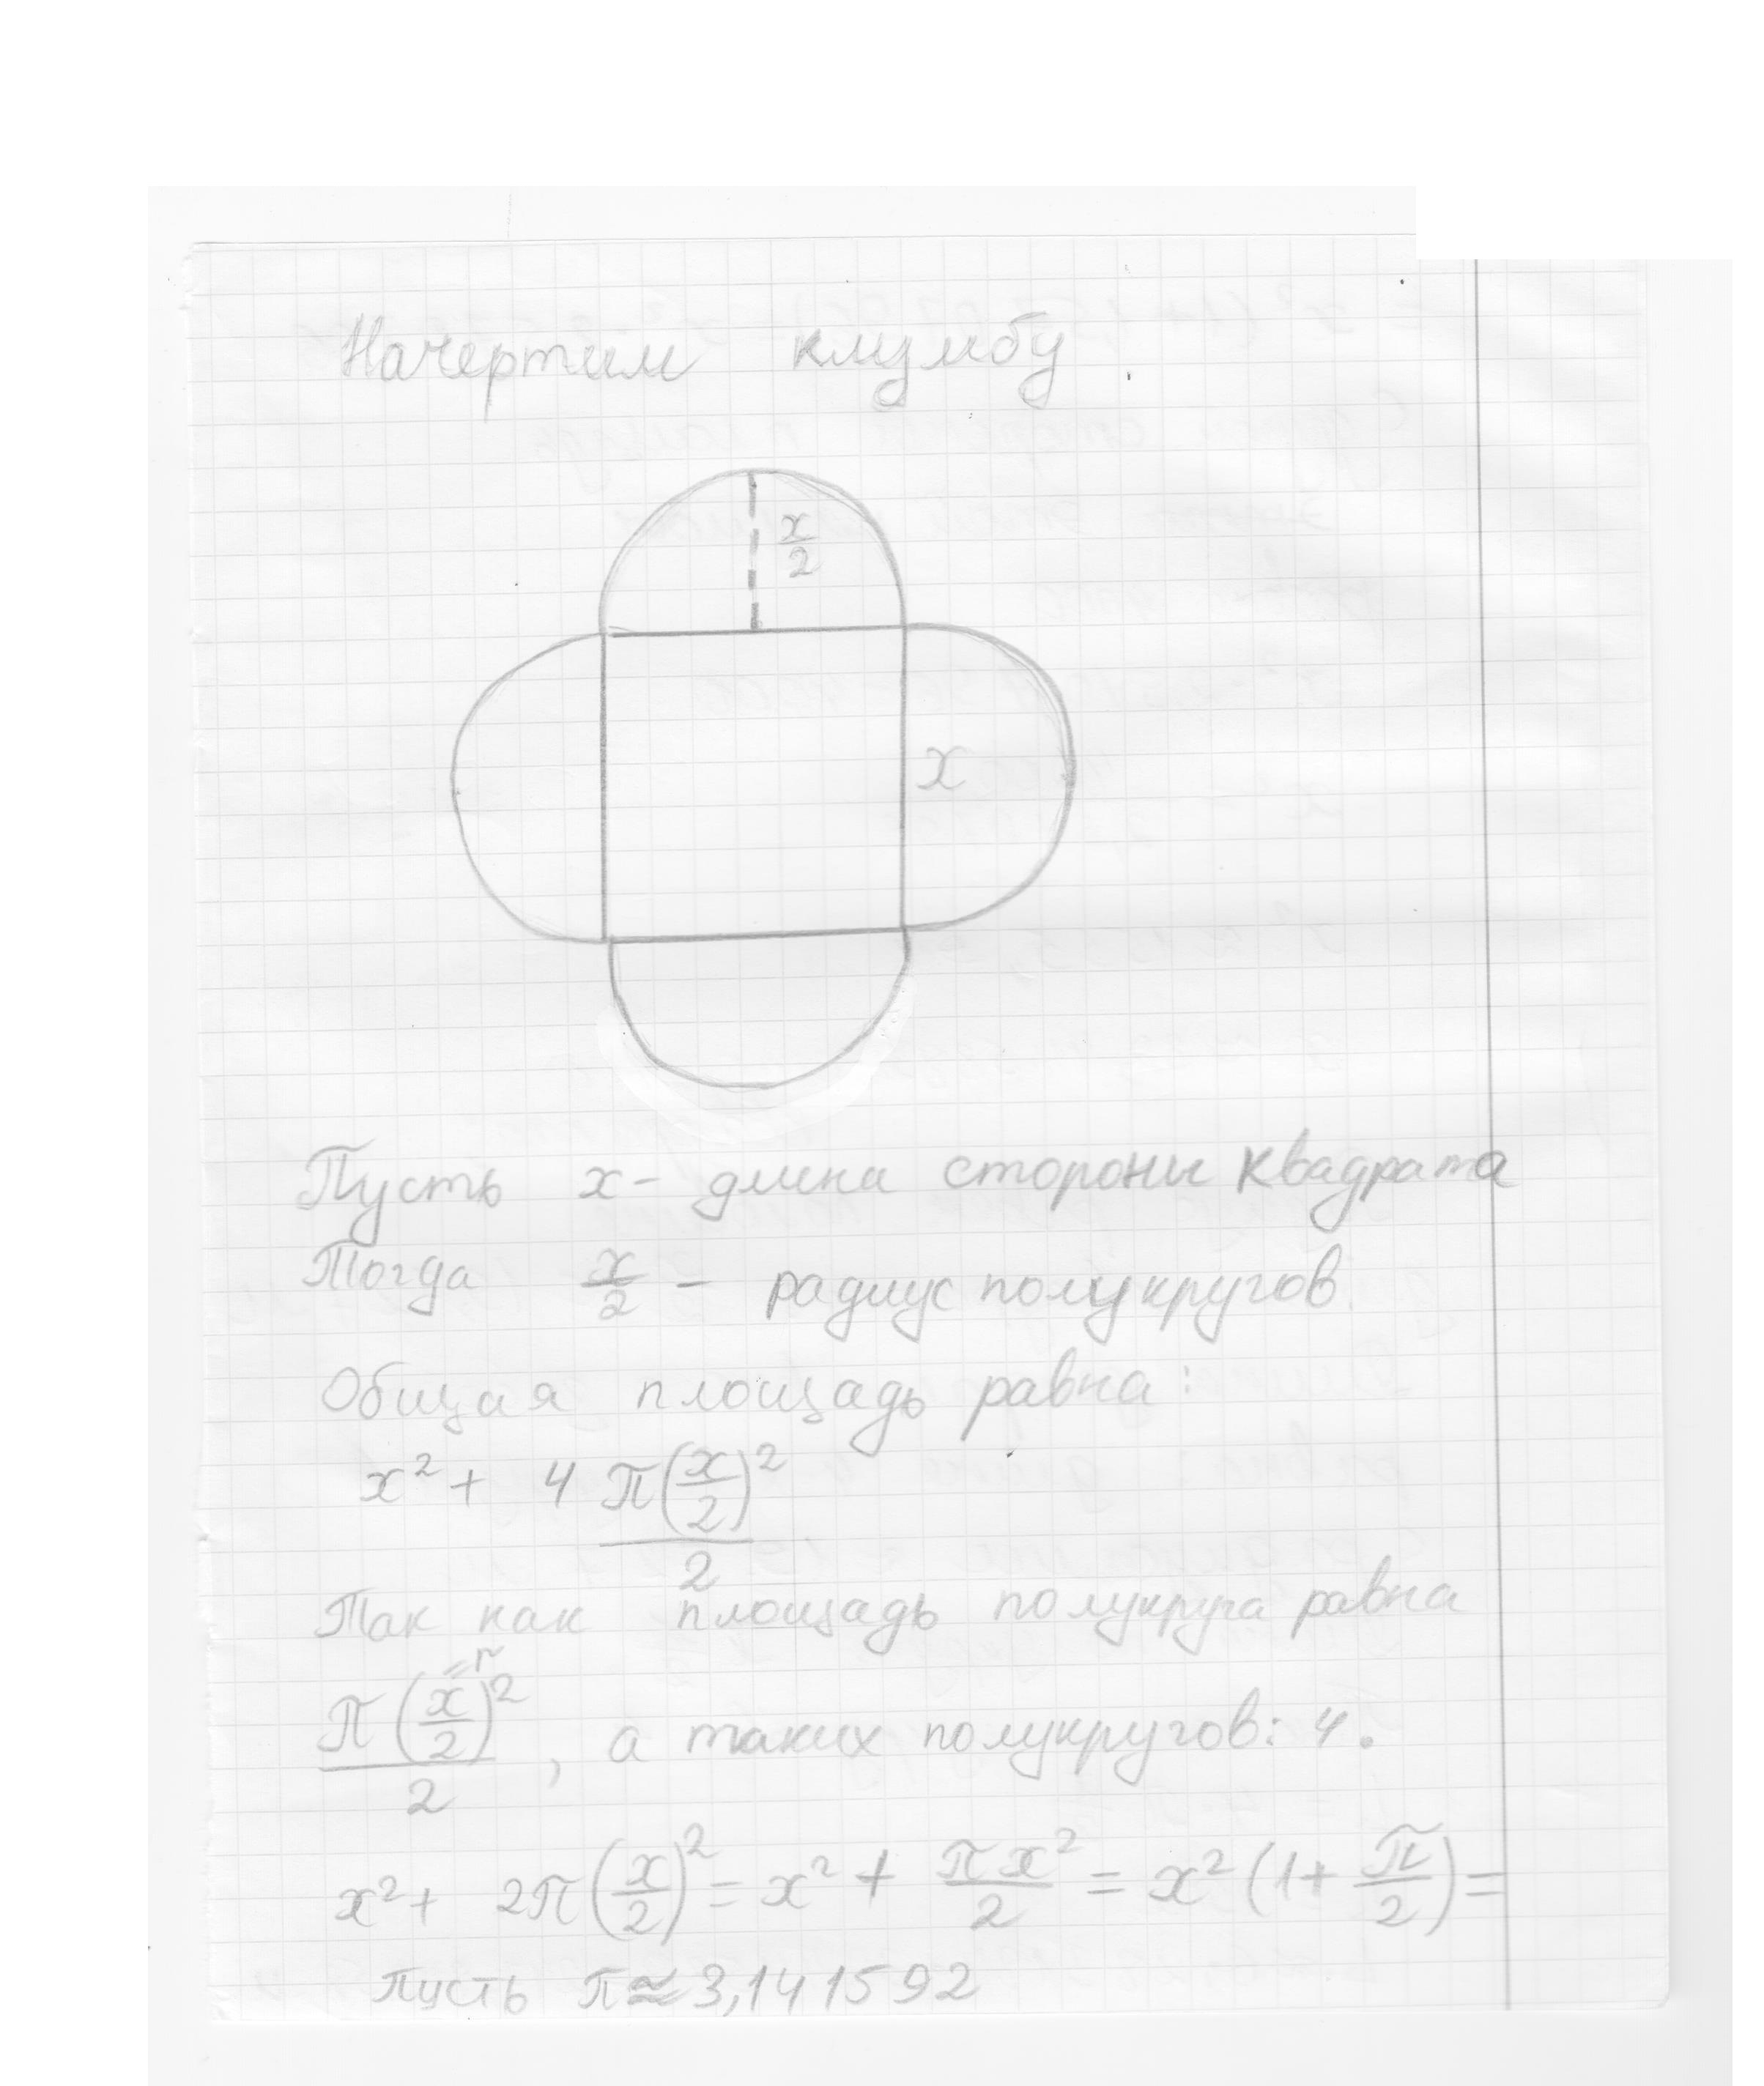 Начертим клумбу.
x/2
x
Пусть x - длина стороны квадрата
Тогда x/2 - радиус полукругов
Общая площадь равна:
x² + 4 π(x/2)²/2
Так как площадь полукруга равна
=r
π(x/2)²/2, а таких полукругов: 4.
x² + 2π(x/2)² = x² + πx²/2 = x²(1+π/2) =
пусть π≈3,141592